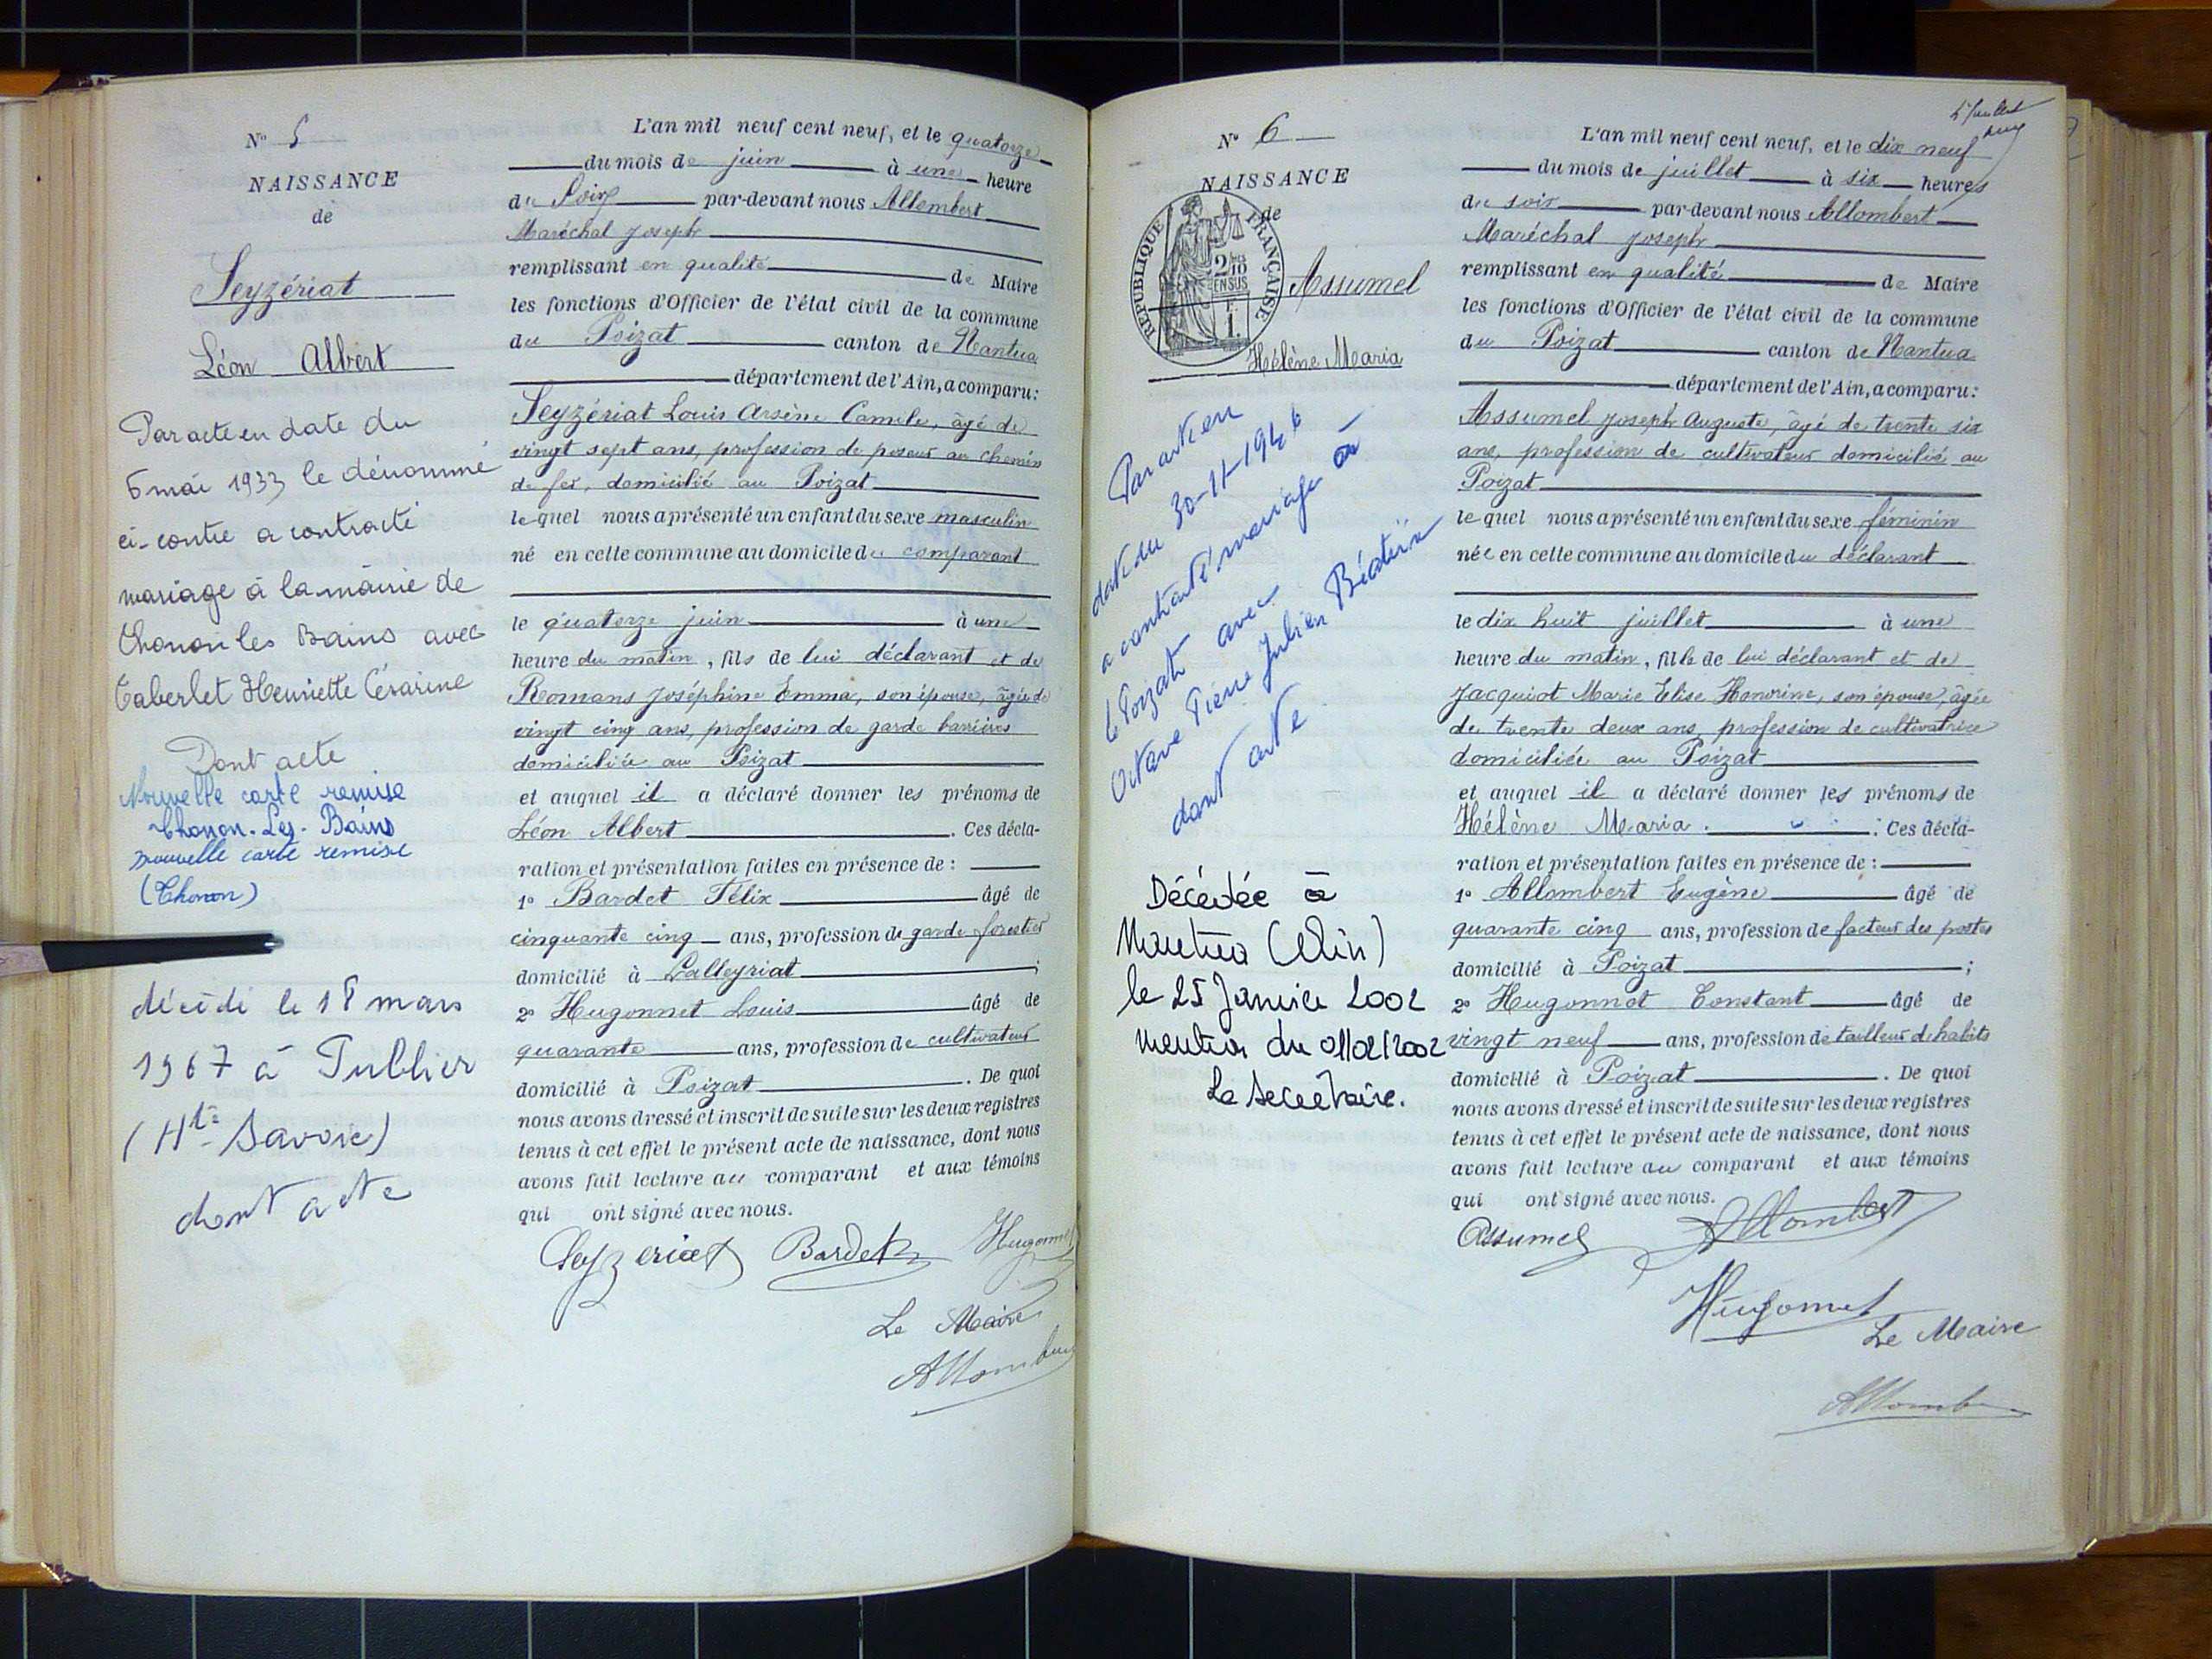 N° 5
NAISSANCE
de
Seyzériat
Léon Albert
Par acte en date du
6 mai 1933 le dénommé
ci-contre a contracté
mariage à la mairie de
Thonon les Bains avec
Taberlet Henriette Césarine
Dont acte
Nouvelle carte remise
Thonon-Les-Bains
nouvelle carte remise
(Thonon)
décédé le 18 mars
1967 à Publier
(Hte Savoie)
dont acte
L'an mil neuf cent neuf, et le quatorze
du mois de juin à une heure
du soir par-devant nous Allombert
Maréchal Joseph
remplissant en qualité de Maire
les fonctions d'Officier de l'état civil de la commune
du Poizat canton de Nantua
département de l'Ain, a comparu:
Seyzériat Louis Arsène Camile, âgé de
vingt sept ans, profession de poseur au chemin
de fer, domicilié au Poizat
lequel nous a présenté un enfant du sexe masculin
né en celle commune au domicile du comparant
le quatorze juin à une
heure du matin, fils de lui déclarant et de
Romans Joséphine Emma, son épouse, âgée de
vingt cinq ans, profession de garde barrières
domiciliée au Poizat
et auquel il a déclaré donner les prénoms de
Léon Albert . Ces décla-
ration et présentation faites en présence de :
1° Bardet Félix âgé de
cinquante cinq ans, profession de garde forestier
domicilié à Lalleyriat ;
2° Hugonnet Louis âgé de
quarante ans, profession de cultivateur
domicilié à Poizat . De quoi
nous avons dressé et inscrit de suite sur les deux registres
tenus à cet effet le présent acte de naissance, dont nous
avons fait lecture au comparant et aux témoins
qui ont signé avec nous.
Seyzeriat Bardet Hugonnet
Le Maire
Allombert
N° 6
NAISSANCE
de
RÉPUBLIQUE FRANÇAISE
2/10
EN SUS
F.
1.
Assumel
Hélène Maria
Par acte en
date du 30-11-1946
a contracté mariage à
le Poizat avec
Octave Pierre Julien Béatrix
dont acte
Décédée à
Nantua (Ain)
le 25 Janvier 2002
mention du 01/02/2002
La Secrétaire.
L'an mil neuf cent neuf, et le dix neuf
du mois de juillet à six heures
du soir par-devant nous Allombert
Maréchal Joseph
remplissant en qualité de Maire
les fonctions d'Officier de l'état civil de la commune
du Poizat canton de Nantua
département de l'Ain, a comparu:
Assumel Joseph Auguste, âgé de trente six
ans, profession de cultivateur domicilié au
Poizat
lequel nous a présenté un enfant du sexe féminin
née en celle commune au domicile du déclarant
le dix huit juillet à une
heure du matin, fille de lui déclarant et de
Jacquiot Marie Elise Honorine, son épouse, âgée
de trente deux ans, profession de cultivatrice
domiciliée au Poizat
et auquel il a déclaré donner les prénoms de
Hélène Maria . Ces décla-
ration et présentation faites en présence de :
1° Allombert Eugène âgé de
quarante cinq ans, profession de facteur des postes
domicilié à Poizat ;
2° Hugonnet Constant âgé de
vingt neuf ans, profession de tailleur d'habits
domicilié à Poizat . De quoi
nous avons dressé et inscrit de suite sur les deux registres
tenus à cet effet le présent acte de naissance, dont nous
avons fait lecture au comparant et aux témoins
qui ont signé avec nous.
Assumel Allombert
Hugonnet
Le Maire
Allombert